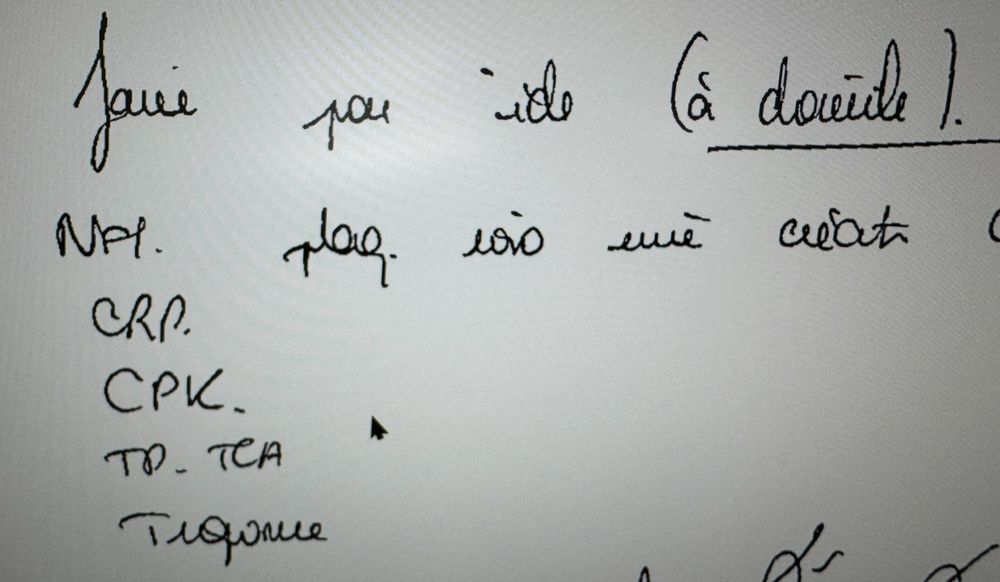 faire par ide (à domicile).
NFS. plaq. iono urée créat. (
CRP.
CPK.
TP - TCA
Troponine